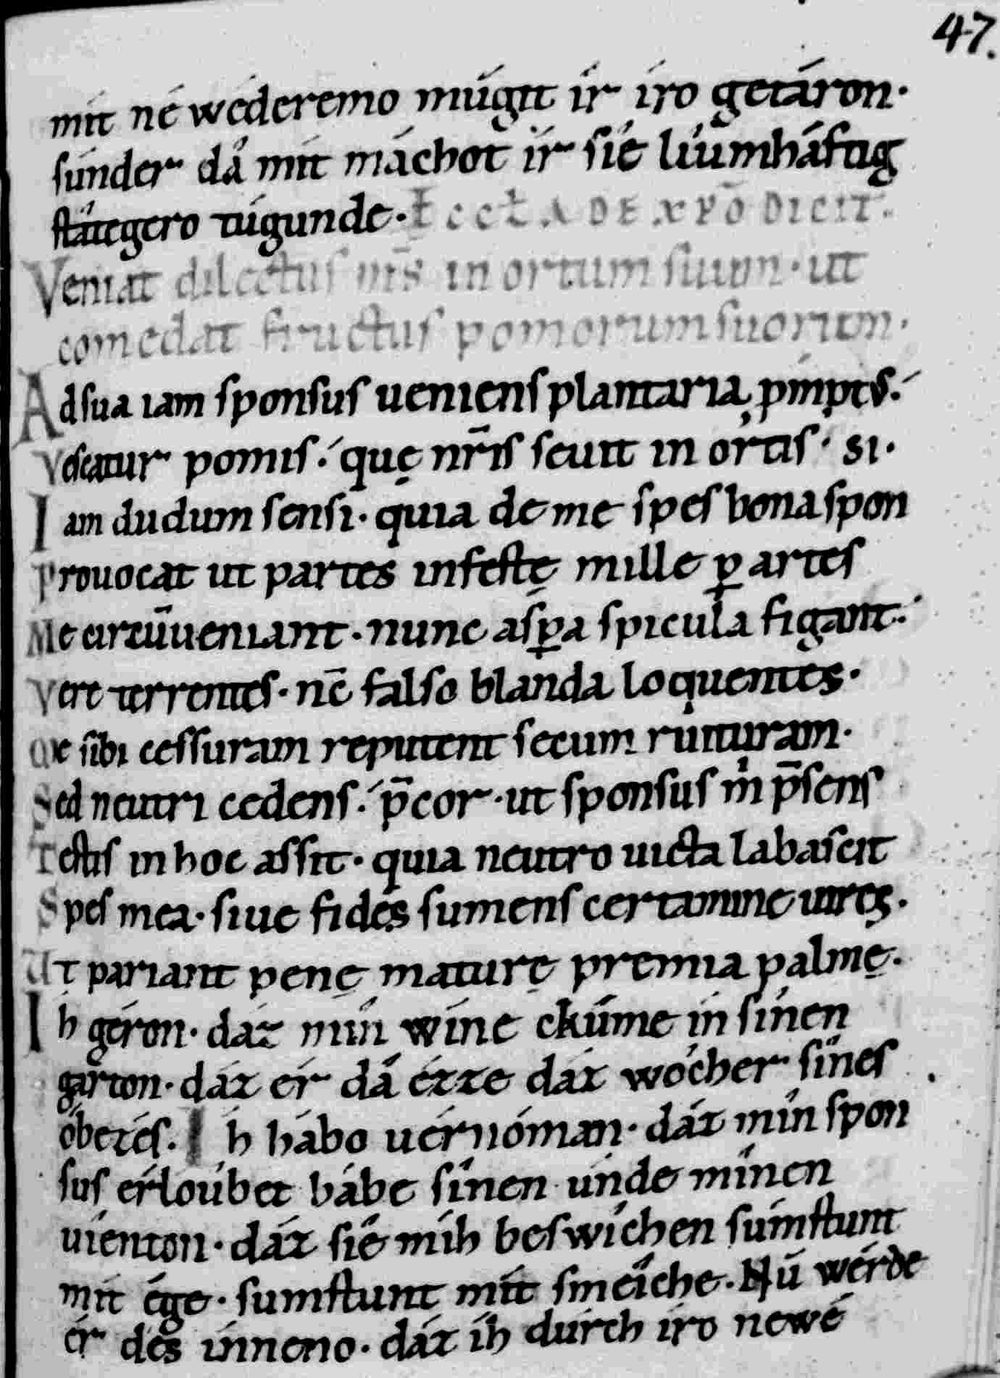 47.
mit né wéderemo múgit ír íro getáron·
súnder dâ mit máchot ír síe líumháftig
stâtegero túgunde· Eccła de xp̄o dicit.
Veniat dilectus m̄s in ortum suum· ut
comedat fructus pomorum suorum·
Ad sua iam sponsus ueniens plantaria, pmptus·
Vescatur pomis·' quę nr̄is seuit in ortis· si·
Iam dudum sensi· quia de me spes bona spon
Prouocat ut partes infestę mille ꝑ artes
Me circūueniant· nunc asꝑa spicula figant·
Vere terrentes· nc̄ falso blanda loquentes·
Me sibi cessuram reputent secum ruituram·
Sed neutri cedens·' p̄cor· ut sponsus m̄ p̄sens
Testis in hoc assit· quia neutro uicta labascit
Spes mea· siue fides sumens certamine uires·
Ut pariant penę maturę premia palmę·
Ih géron· daz mín wíne ckúme ín sínen
gárton· dáz ér dâ ézze dáz wócher sînes
óbezes· Ih hábo uernóman· dáz mín spon
sus erlóubet hábe sînen únde mînen
uíenton· dáz síe míh beswíchen súmstunt
mít ége· súmstunt mít sméiche· Nû wérde
ér dés ínneno· dáz íh dúrch íro newé